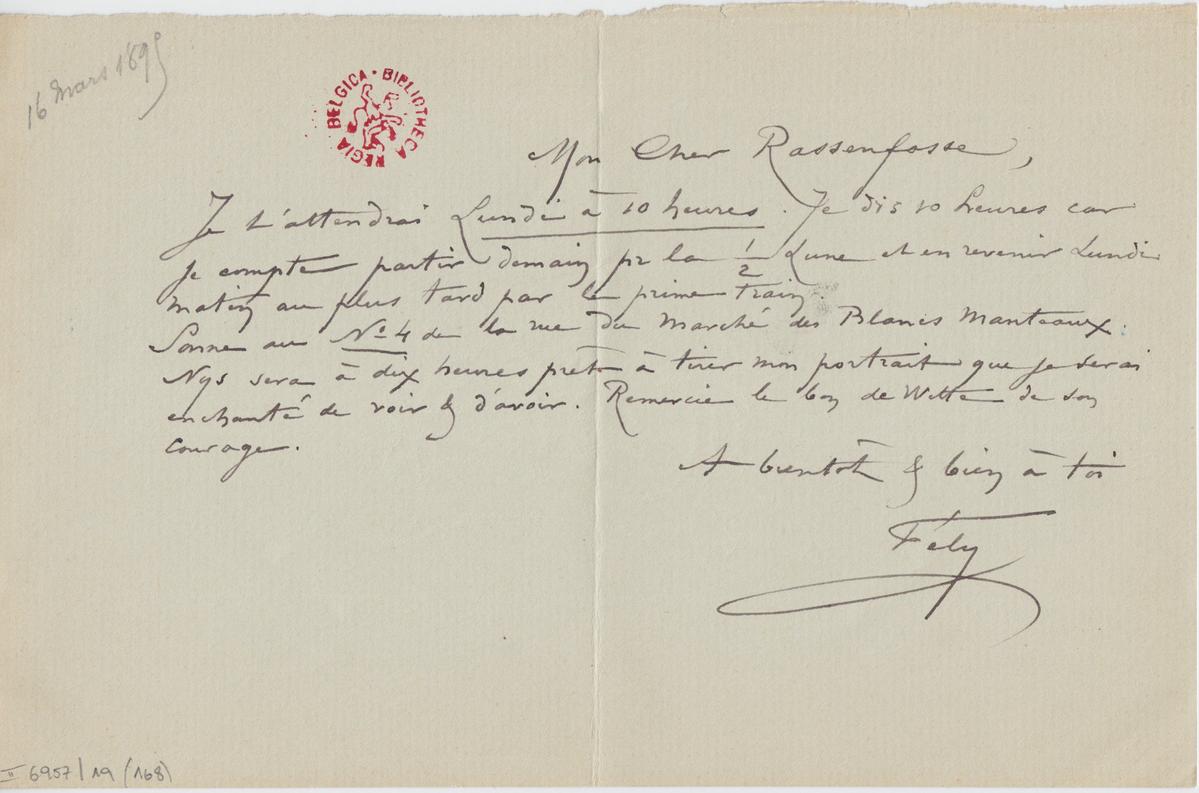 16 Mars 1895
BIBLIOTHECA REGIA BELGICA
Mon Cher Rassenfosse,
Je t'attendrai Lundi à 10 heures. Je dis 10 heures car
je compte partir demain pr la 1/2 Lune et en revenir Lundi
matin au plus tard par le prime train.
Sonne au No 4 de la rue du Marché des Blancs Manteaux.
Nys sera à dix heures prêt à tirer mon portrait que je serai
enchanté de voir & d'avoir. Remercie le bon de Witte de son
courage.
A bientôt & bien à toi
Fély
II 6957/19 (168)